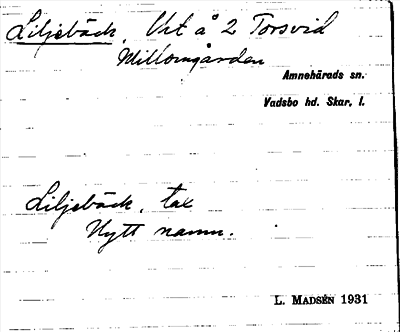 Liljebäck. Vrt å 2 Torsvid
Mellomgården
Amnehärads sn.
Vadsbo hd. Skar. l.
Liljebäck, tax
Nytt namn.
L. MADSÉN 1931